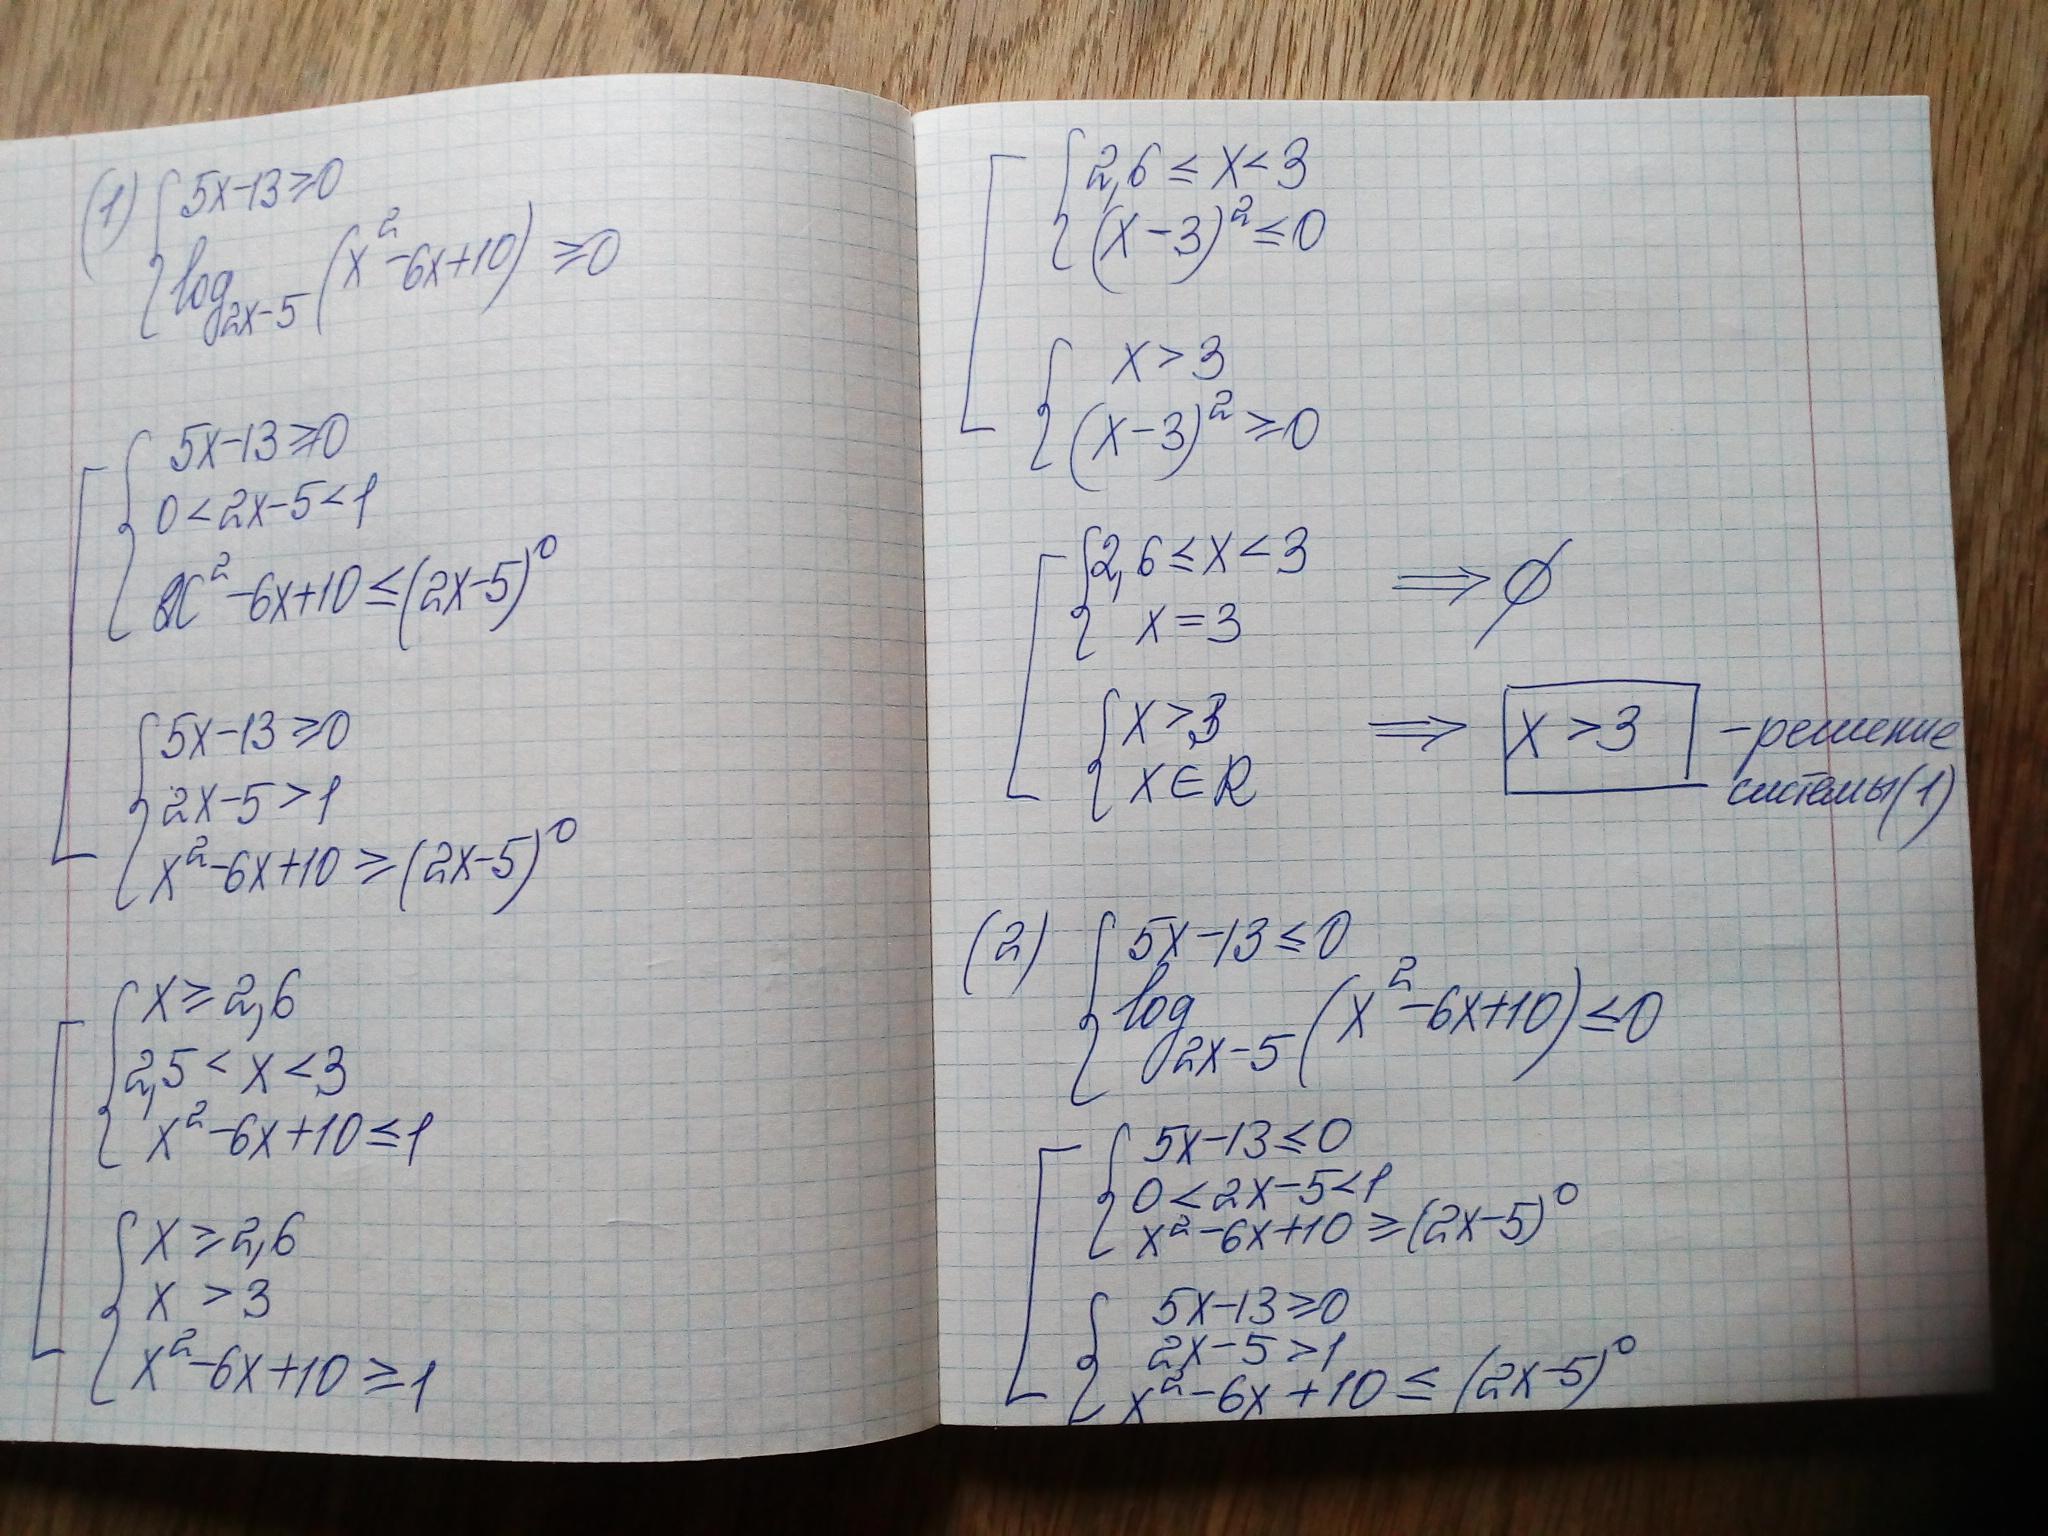 (1) 5x-13≥0
log₂ₓ₋₅(x²-6x+10)≥0
5x-13≥0
0<2x-5<1
x²-6x+10≤(2x-5)⁰
5x-13≥0
2x-5>1
x²-6x+10≥(2x-5)⁰
x≥2,6
2,5<x<3
x²-6x+10≤1
x≥2,6
x>3
x²-6x+10≥1
2,6≤x<3
(x-3)²≤0
x>3
(x-3)²≥0
2,6≤x<3 ⟹ ∅
x=3
x>3 ⟹ x>3 - решение
x∈R системы(1)
(2) 5x-13≤0
log₂ₓ₋₅(x²-6x+10)≤0
5x-13≤0
0<2x-5<1
x²-6x+10≥(2x-5)⁰
5x-13≥0
2x-5>1
x²-6x+10≤(2x-5)⁰